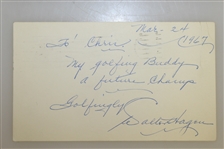 Mar. 24
1967
To Chris
My golfing Buddy
a future Champ
Golfingly
Walter Hagen